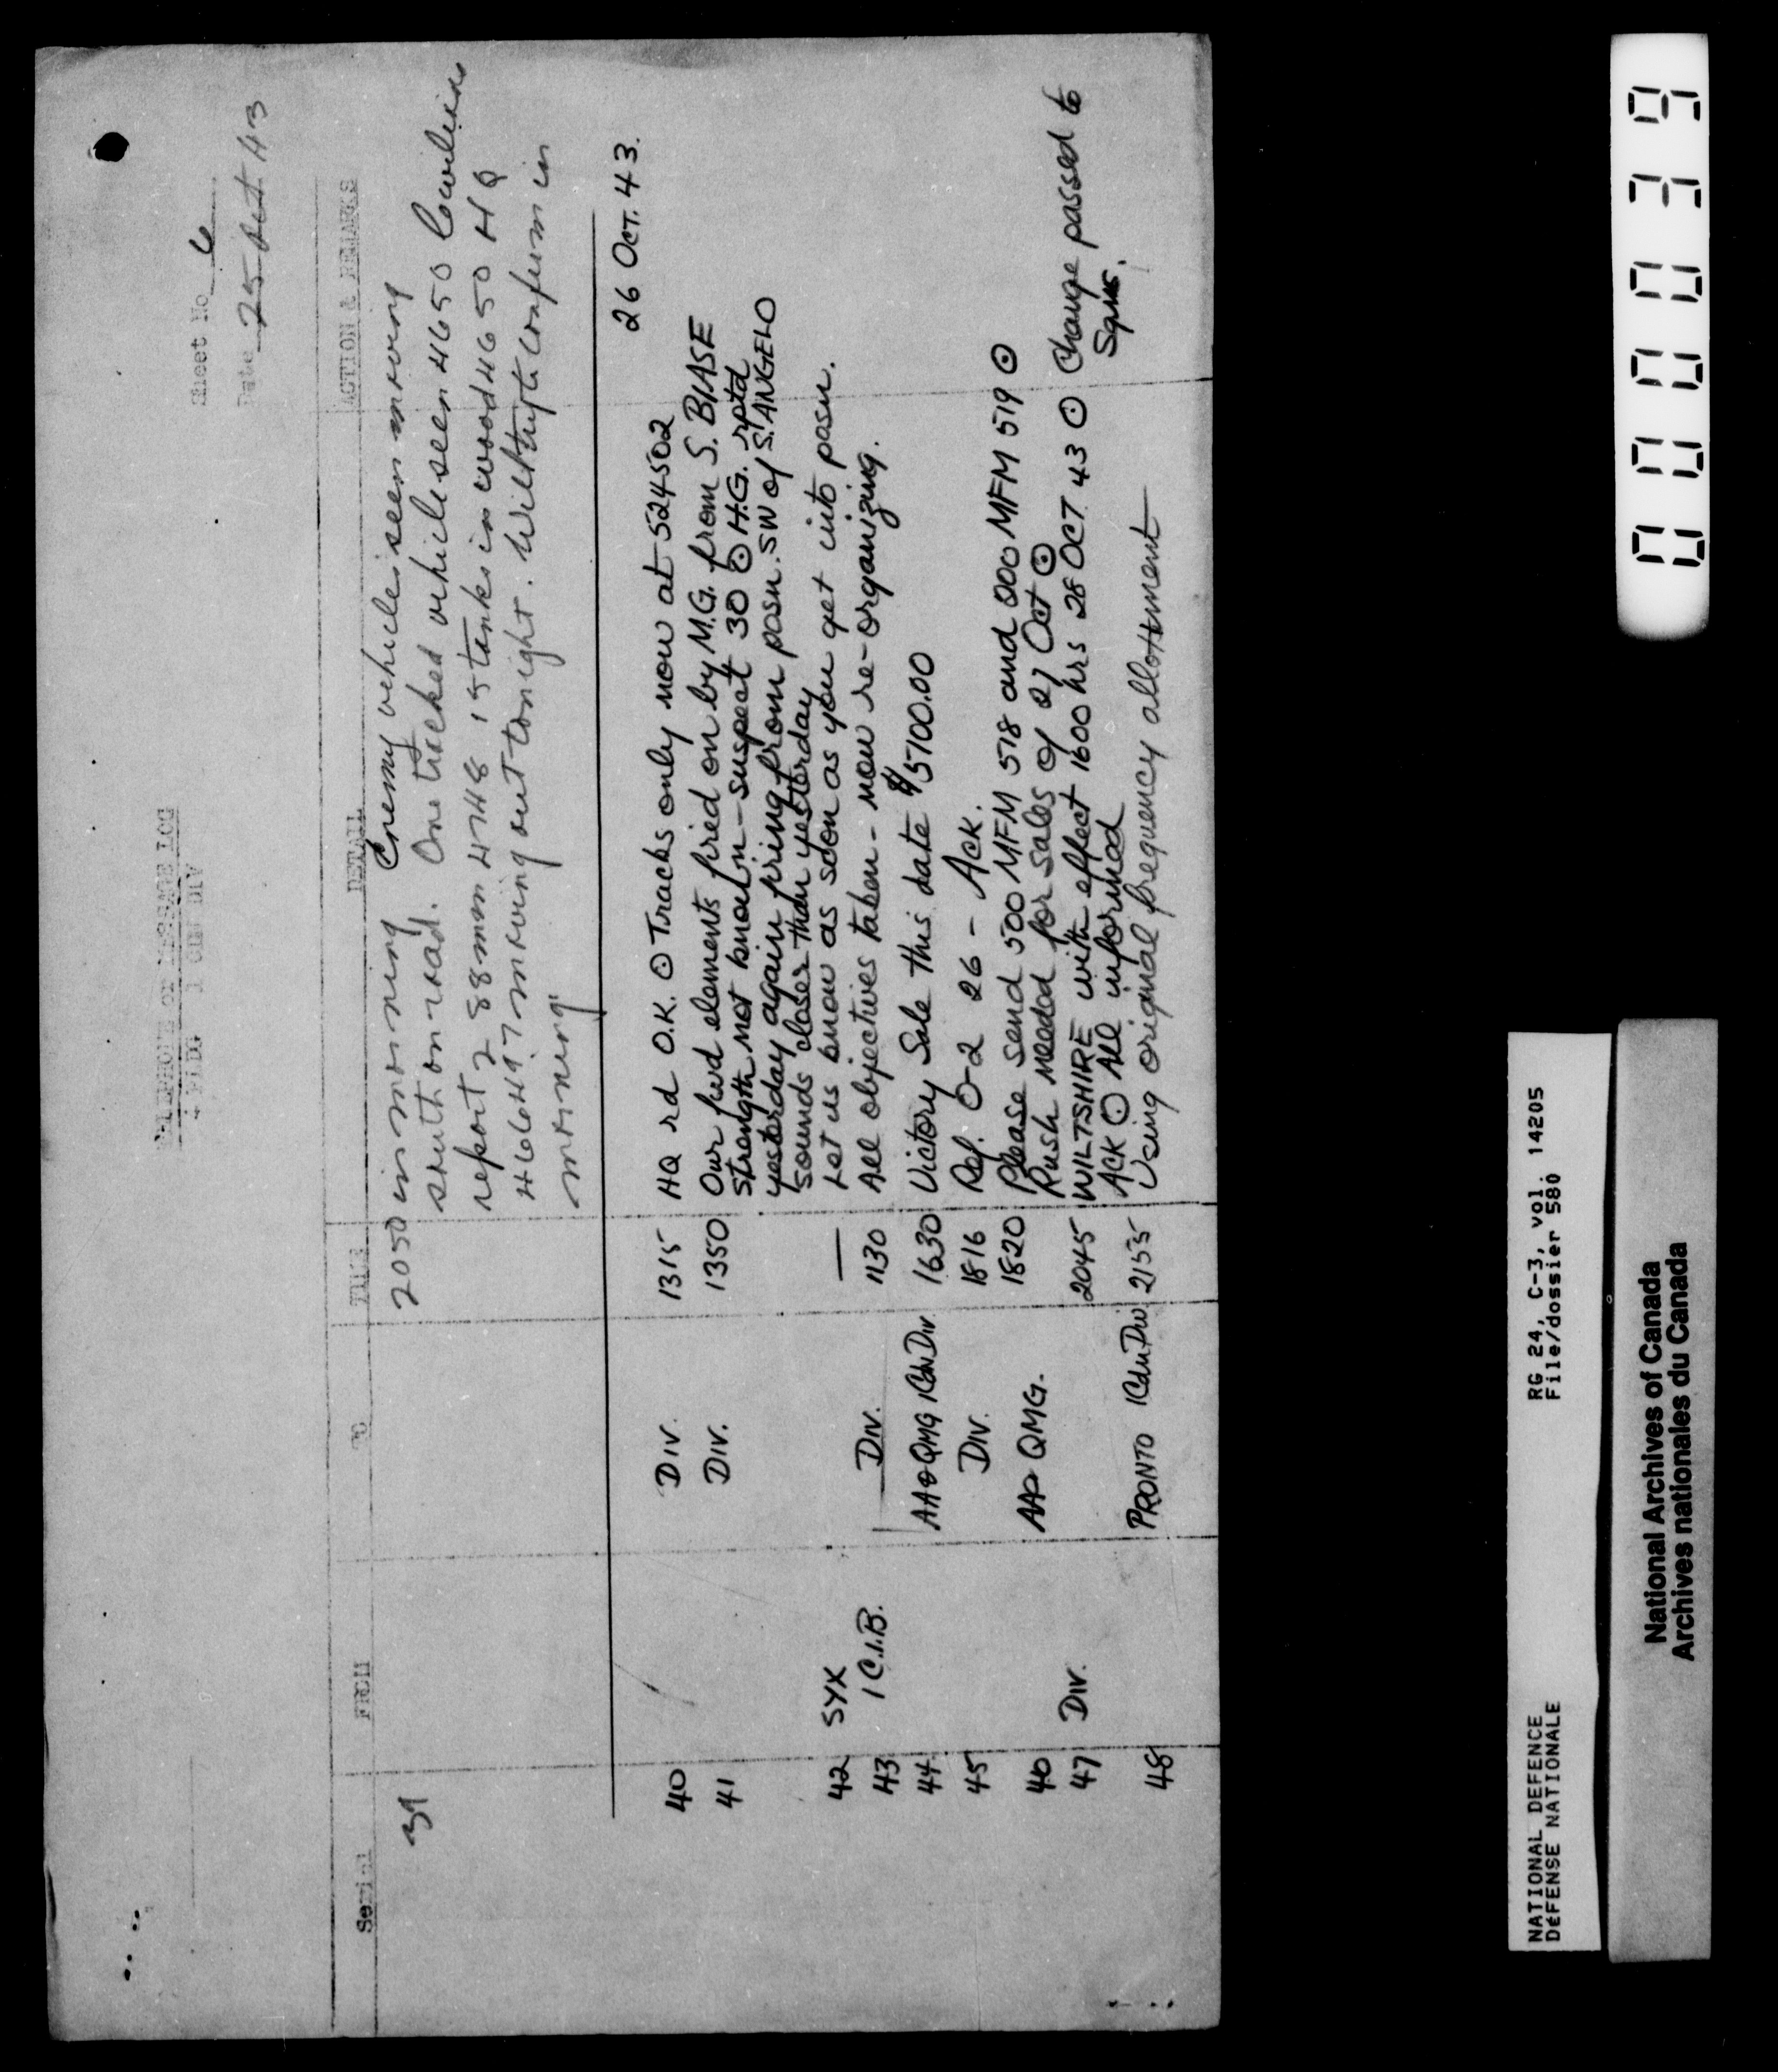 TELEPHONE OR MESSAGE LOG
4 FLDG 1 CDN DIV
Sheet No 6
Date 25 Oct 43
Serial FROM TO TIME DETAIL ACTION & REMARKS
39 2050 in morning Enemy vehicles seen moving
south on road. One tracked vehicle seen 4650
report 2 88mm 4748 15 tanks in wood 4650 HQ
466497 moving out tonight. Will try to confirm in
morning"
26 OCT. 43.
40 DIV. 1315 HQ rd O.K. ⊙ Tracks only now at 524502
41 DIV. 1350 Our fwd elements fired on by M.G. from S. BIASE
strength not known - suspect 30 ⊙ H.G. rptd
yesterday again firing from posn. SW of S. ANGELO
sounds closer than yesterday
42 SYK — Let us know as soon as you get into posn.
43 1 C.I.B. DIV. 1130 All objectives taken - now re-organizing.
44 AA&QMG 1 Cdn Div. 1630 Victory Sale this date $5100.00
45 DIV. 1816 Ref. O-2 26 - ACK.
46 AA&QMG. 1820 Please send 500 MFM 518 and 000 MFM 519 ⊙
Rush needed for sales of 27 Oct ⊙
47 DIV. 2045 WILTSHIRE with effect 1600 hrs 28 OCT 43 ⊙ Change passed to
ACK ⊙ All informed Sqns.
48 PRONTO 1 Cdn Div 2155 Using original frequency allottment
000039
NATIONAL DEFENCE RG 24, C-3, vol. 14205
DéFENSE NATIONALE File/dossier 580
National Archives of Canada
Archives nationales du Canada